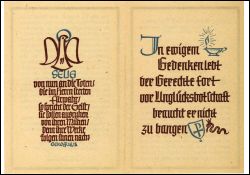 SELIG
von nun an die Toten
die im Herrn sterben
Fürwahr,
so spricht der Geist,
sie sollen ausruhen
von ihren Mühen
denn ihre Werke
folgen ihnen nach
In ewigem
Gedenken lebt
der Gerechte fort
vor Unglücksbotschaft
braucht er nicht
zu bangen